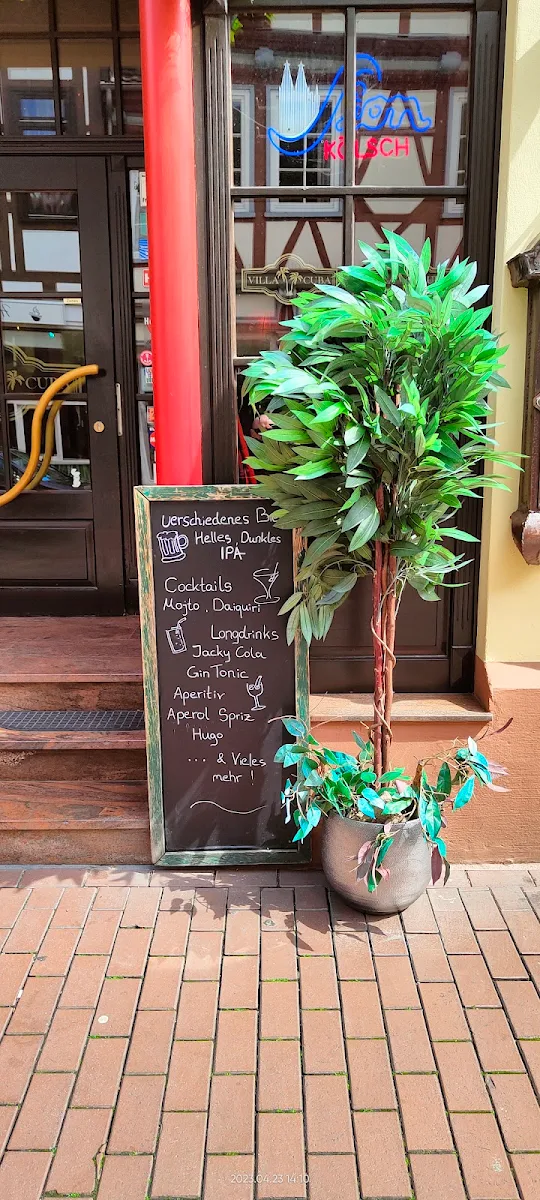 Sion
KÖLSCH
VILLA CUBA
CUBA
Verschiedenes Bie
Helles, Dunkles
IPA
Cocktails
Mojto, Daiquiri
Longdrinks
Jacky Cola
Gin Tonic
Aperitiv
Aperol Spriz
Hugo
... & Vieles
mehr !
2023.04.23 14:10